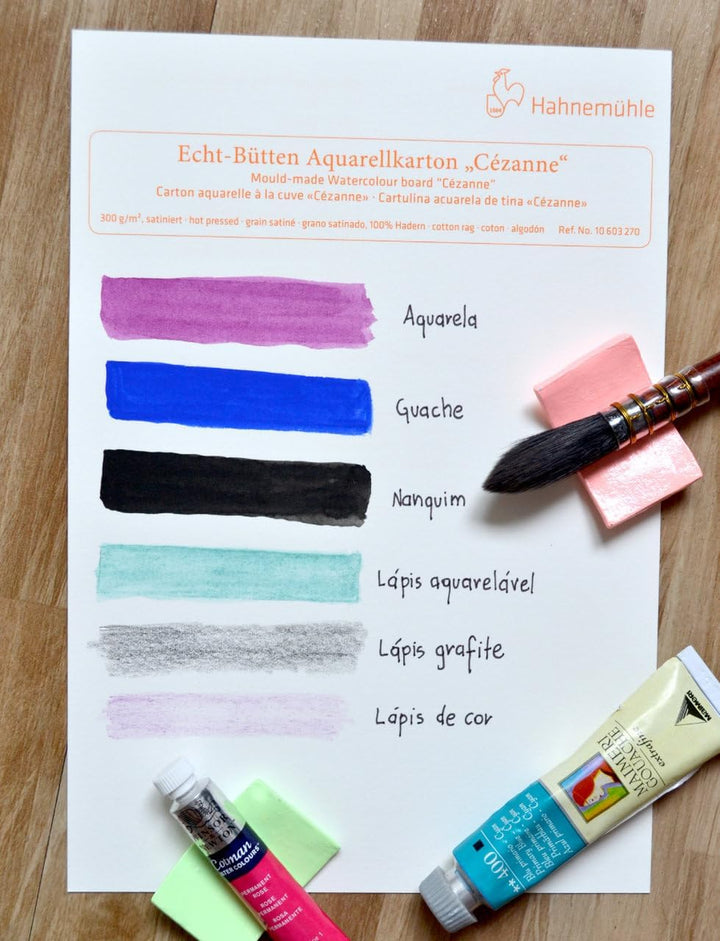 1584
Hahnemühle
Echt-Bütten Aquarellkarton „Cézanne“
Mould-made Watercolour board "Cézanne"
Carton aquarelle à la cuve «Cézanne» · Cartulina acuarela de tina «Cézanne»
300 g/m², satiniert · hot pressed · grain satiné · grano satinado, 100% Hadern · cotton rag · coton · algodón Ref. No. 10 603 270
Aquarela
Guache
Nanquim
Lápis aquarelável
Lápis grafite
Lápis de cor
MAIMERI
GOUACHE
extrafine
400
Primary Blue - Cyan
WINSOR
NEWTON
Cotman
WATER COLOURS
PERMANENT
ROSE
ROSE
PERMANENT
ROSA
PERMANENTE